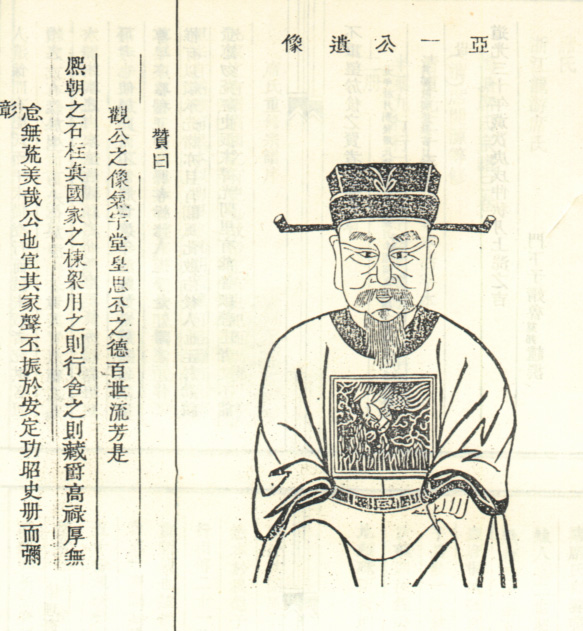 亞一公遺像
贊曰
觀公之像氣宇堂皇思公之德百世流芳是
熈朝之石柱真國家之棟梁用之則行舍之則藏爵高祿厚無
怠無荒美哉公也宜其家聲丕振於安定功昭史册而彌
彰